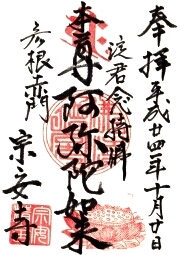 奉拝 平成廿四年十月廿日
淀君念持佛
本尊阿弥陀如来
彦根赤門
宗安寺